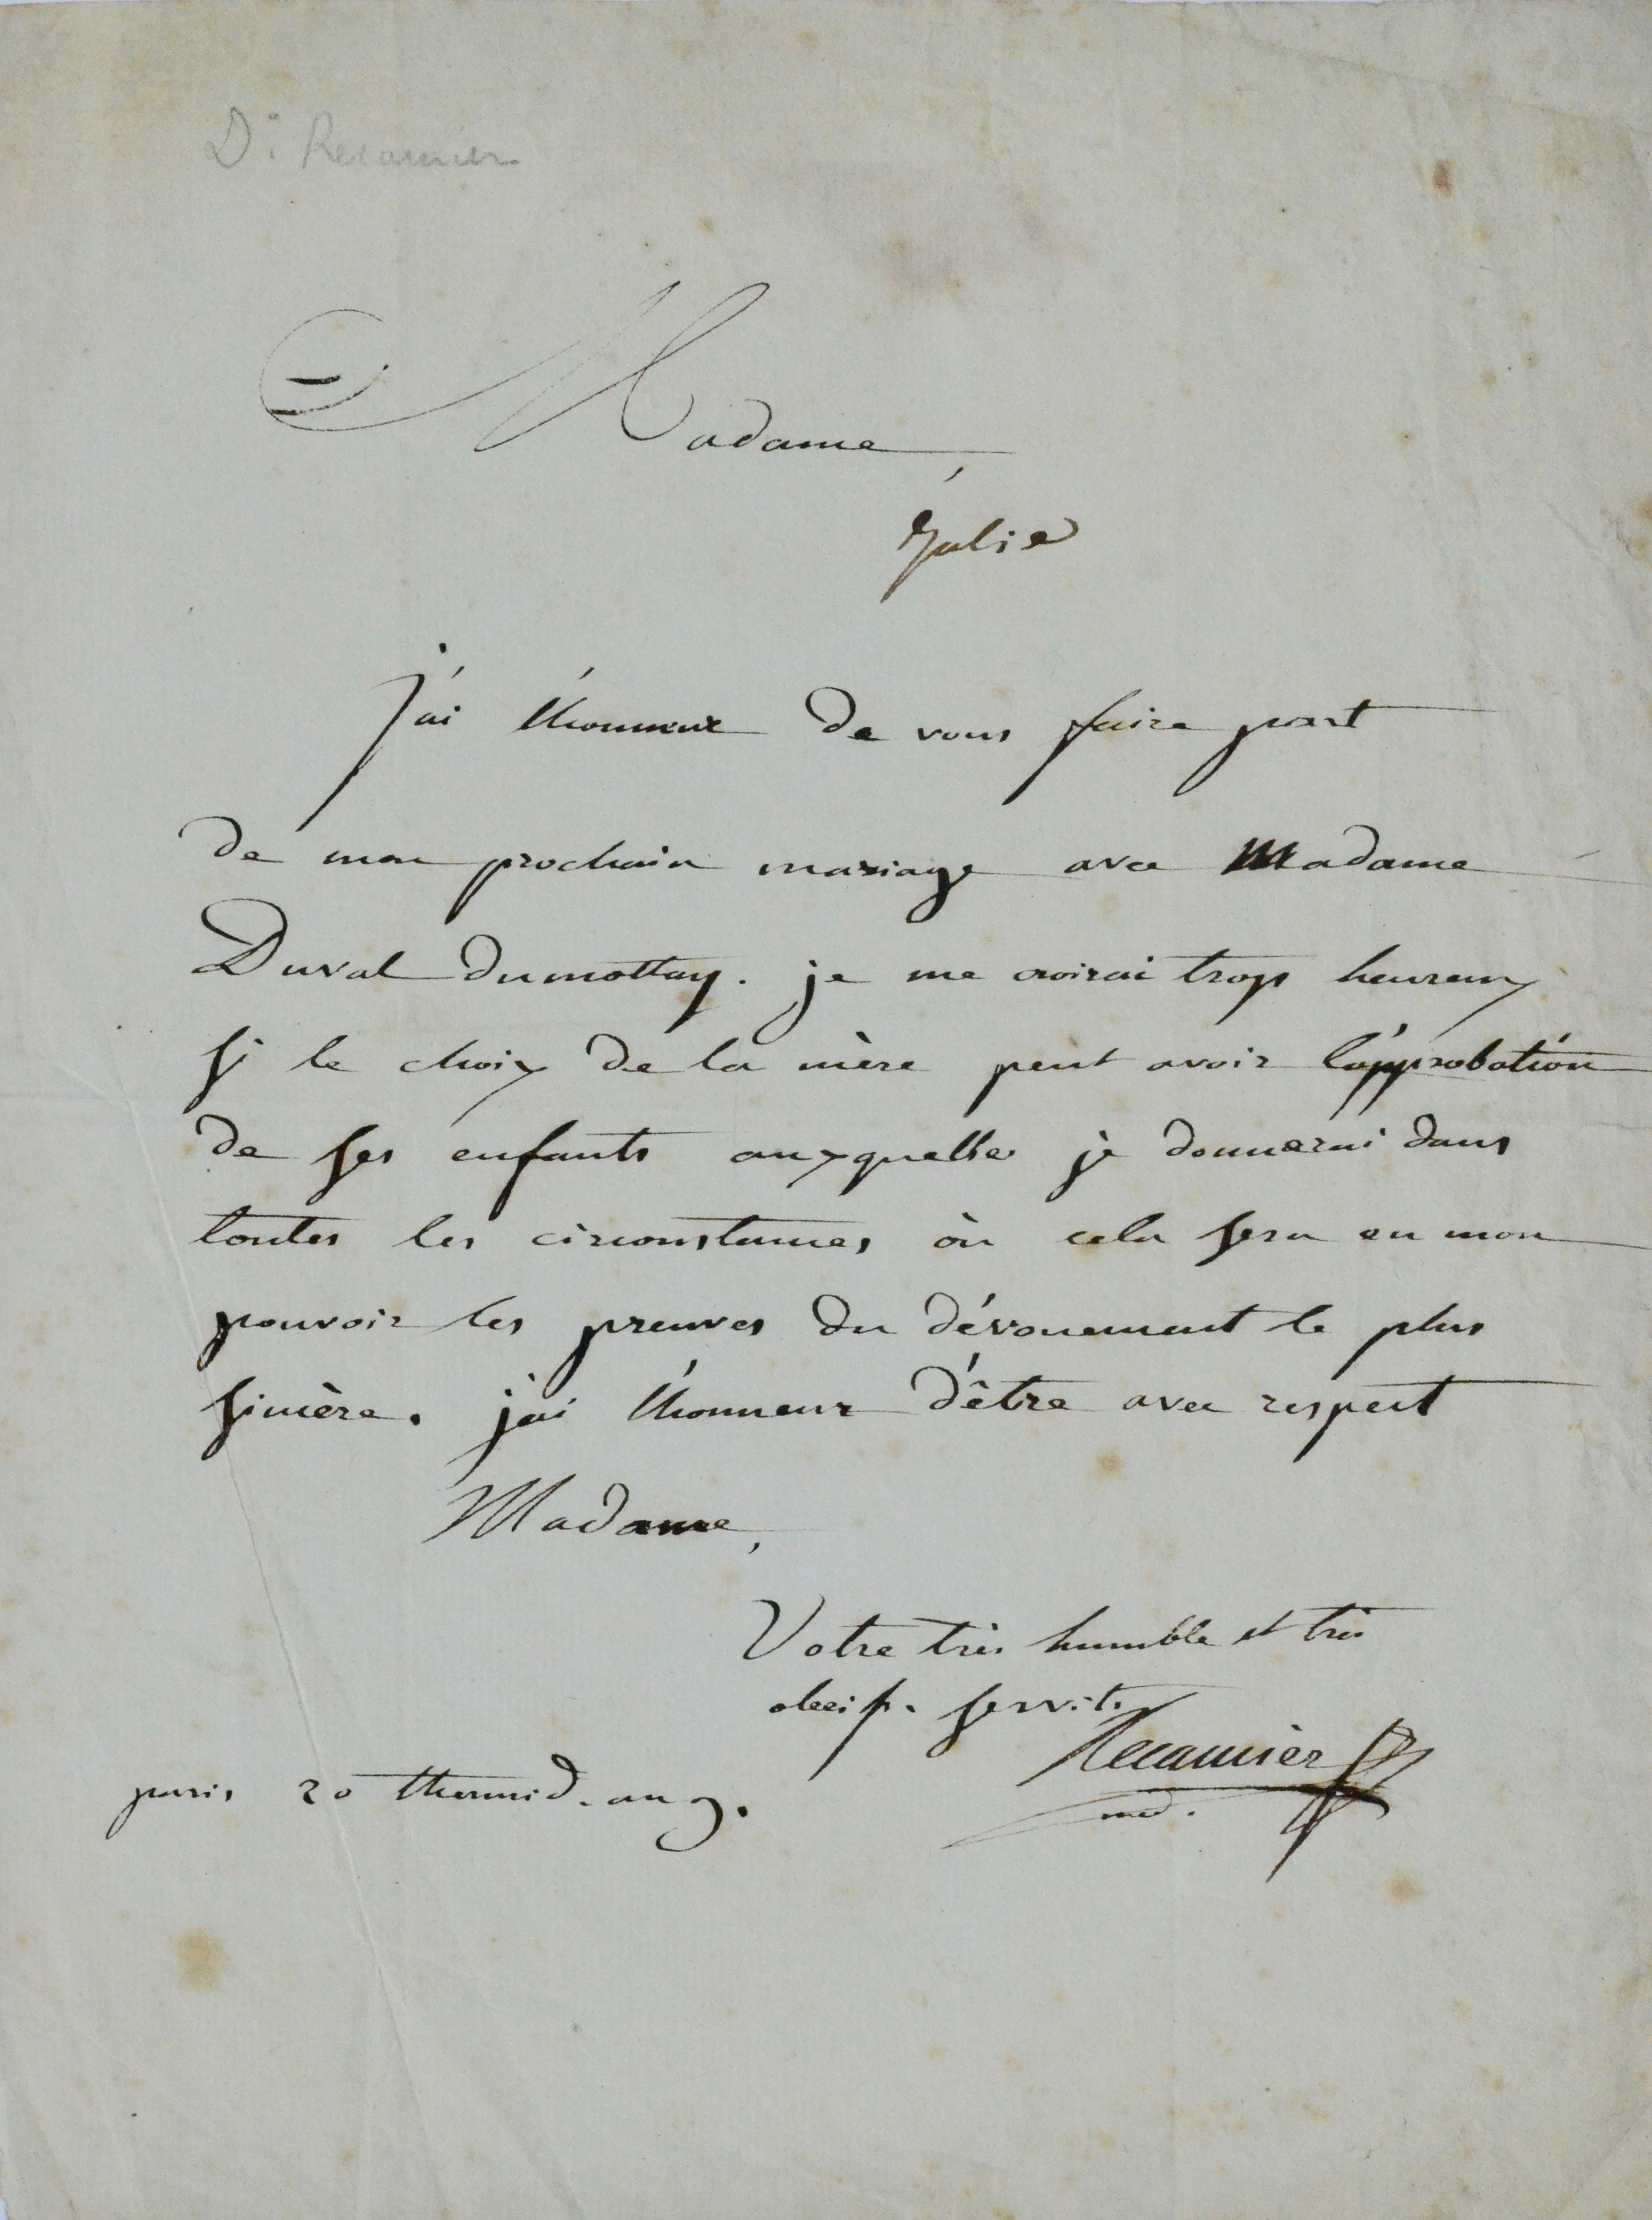 Dr Recamier
Madame,
Julie
j'ai l'honneur de vous faire part
de mon prochain mariage avec Madame
Duval dumottay. je me croirai trop heureux
si le choix de la mère peut avoir l'approbation
de ses enfants auxquelles je donnerai dans
toutes les circonstances où cela sera en mon
pouvoir les preuves du dévouement le plus
sincère. j'ai l'honneur d'être avec respect
Madame,
Votre très humble et très
obéiss. servit.
Recamier
med.
paris 20 thermid. an 9.